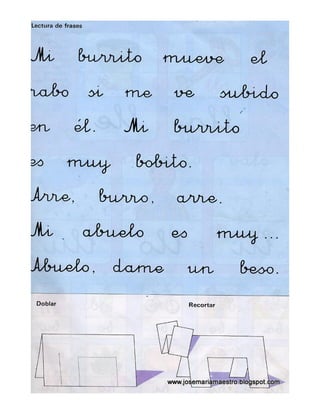 Lectura de frases
Mi burrito mueve el
rabo si me ve subido
en él. Mi burrito
es muy bobito.
Arre, burro, arre.
Mi abuelo es muy ...
Abuelo, dame un beso.
Doblar Recortar
www.josemariamaestro.blogspot.com